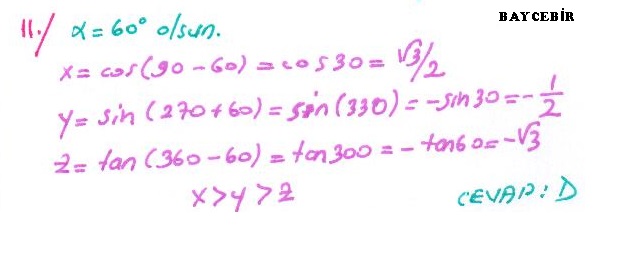 BAYCEBİR
11./ α = 60° olsun.
x = cos(90 - 60) = cos30 = √3/2
y = sin (270 + 60) = sin (330) = -sin30 = -1/2
z = tan (360 - 60) = tan300 = - tan60 = -√3
x > y > z
CEVAP: D